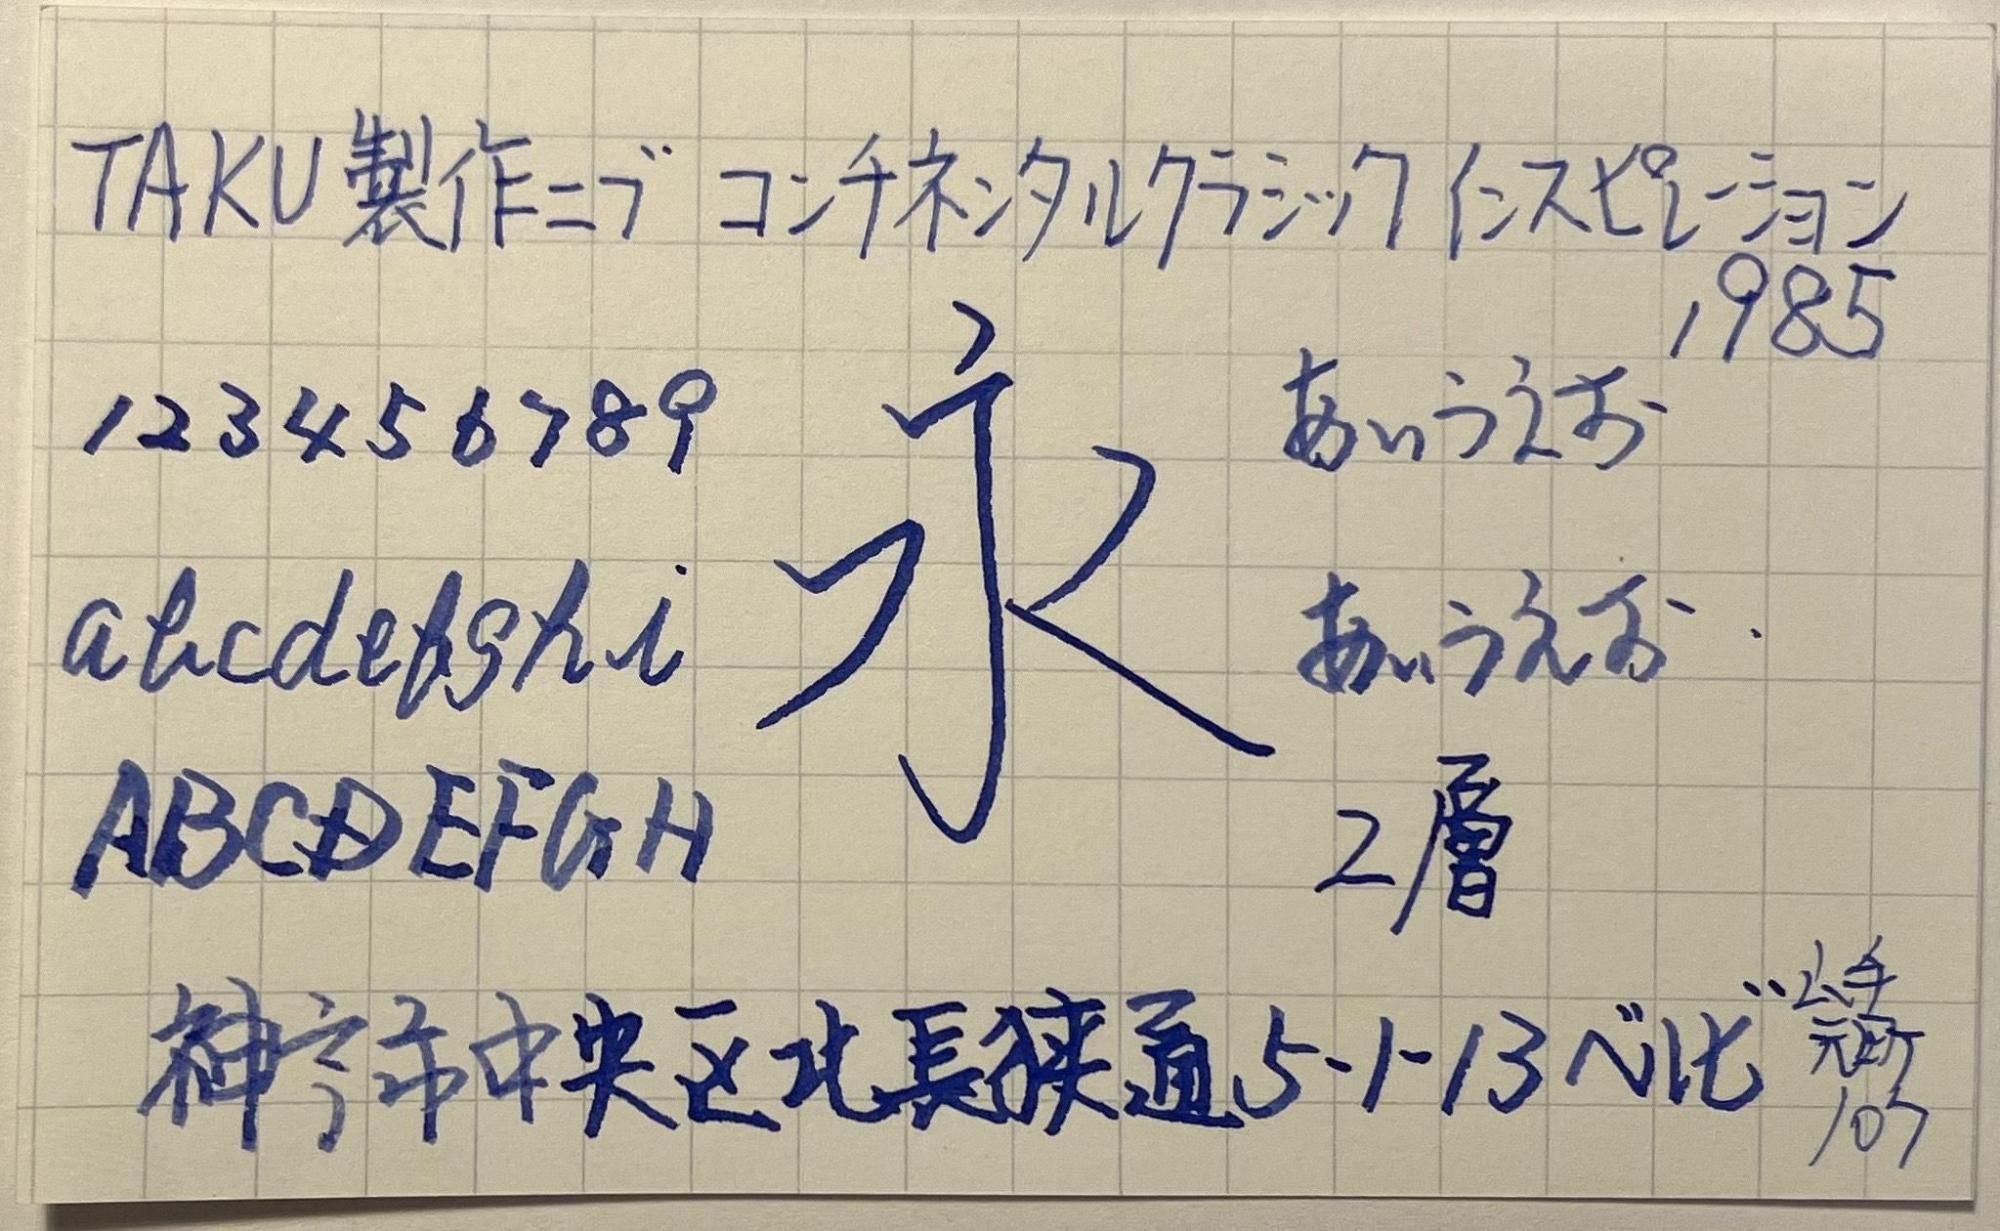 TAKU製作ニブ コンチネンタルクラシックインスピレーション
1985
123456789
永
あいうえお
abcdefghi
あいうえお
ABCDEFGH
2層
神戸市中央区北長狭通5-1-13 ベルビ
山手
元町
107